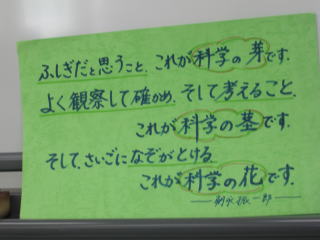 ふしぎだと思うこと、これが科学の芽です。
よく観察して確かめ、そして考えること、
これが科学の茎です。
そして、さいごになぞがとける。
これが科学の花です。